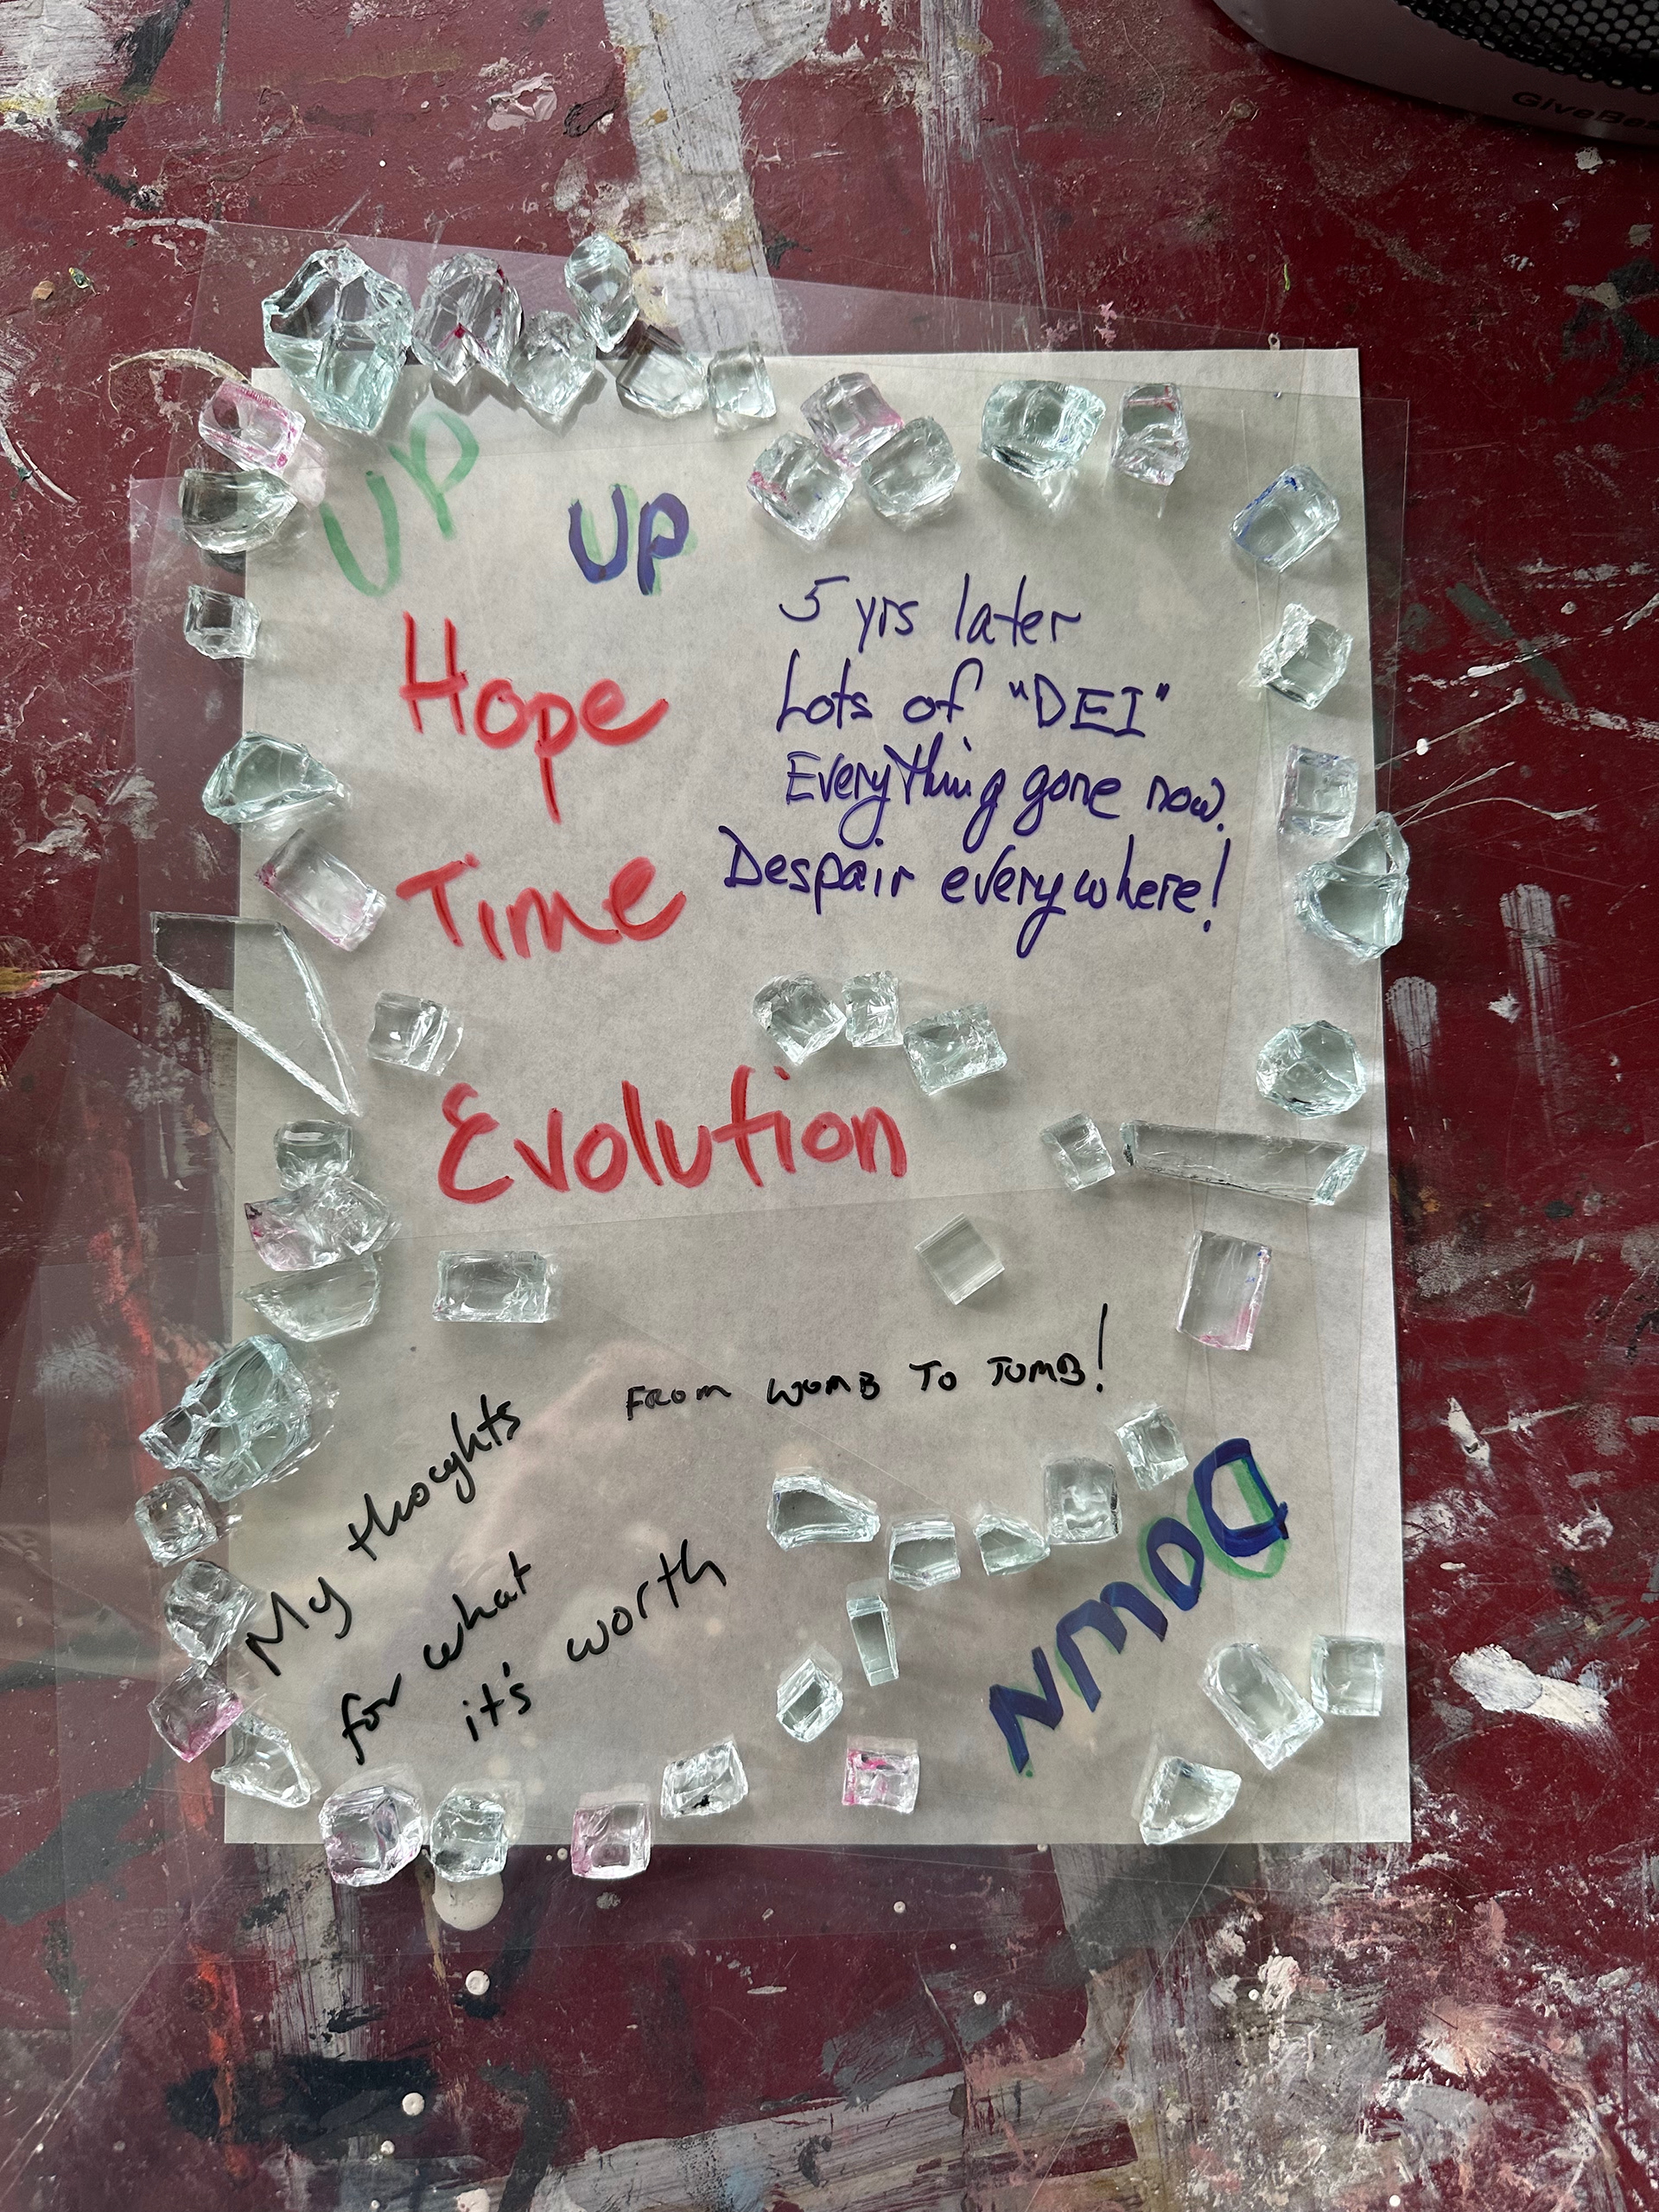 UP
UP
Hope
Time
Evolution
5 yrs later
Lots of "DEI"
Everything gone now.
Despair everywhere!
FROM WOMB TO TOMB!
My thoughts
for what
it's worth
Down